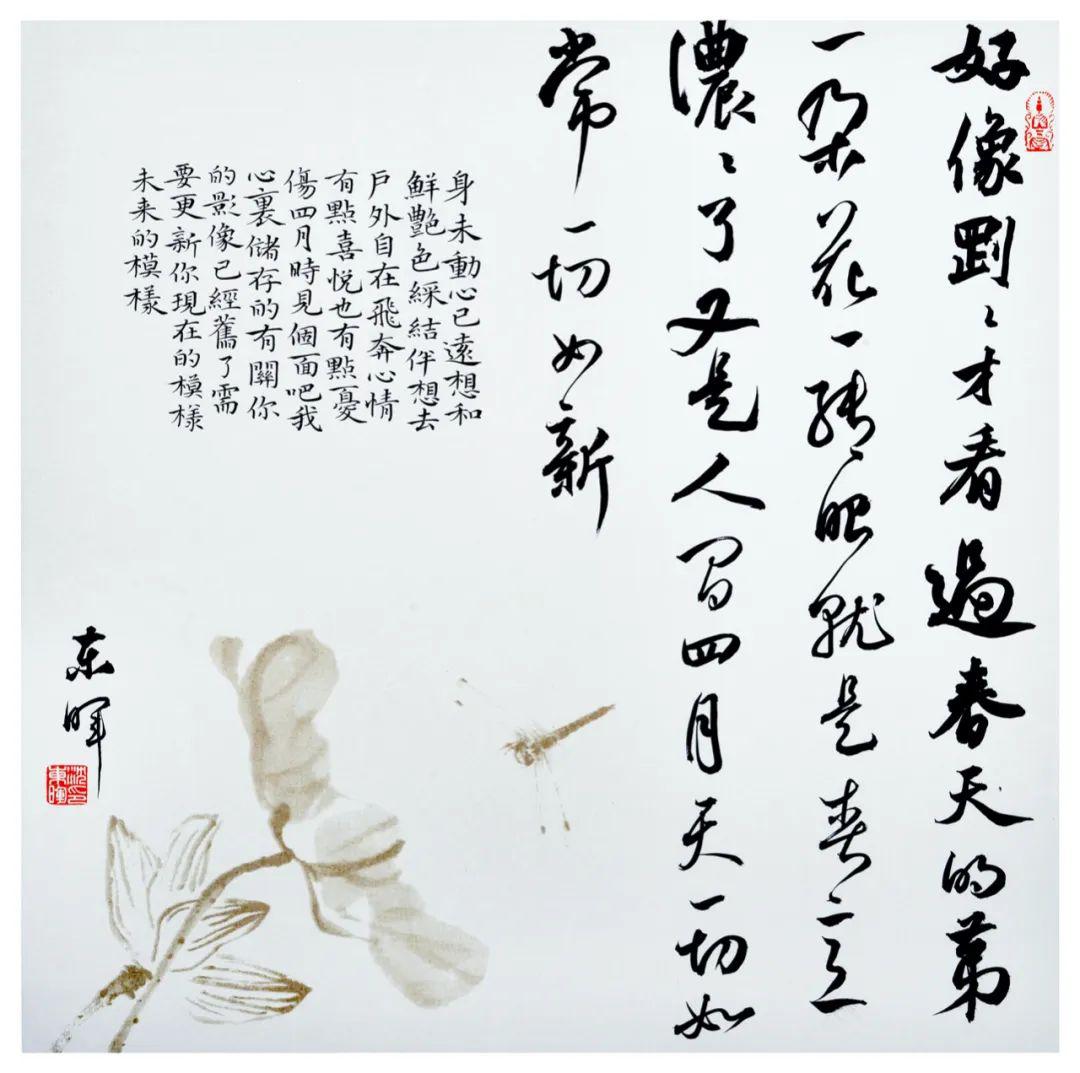 好像剛〻才看過春天的第
一朵花一轉眼就是春意
濃〻了又是人間四月天一切如
常一切如新
身未動心已遠想和
鮮艷色綵結伴想去
戶外自在飛奔心情
有點喜悅也有點憂
傷四月時見個面吧我
心裏儲存的有關你
的影像已經舊了需
要更新你現在的模樣
未来的模樣
東暉
沈印東暉